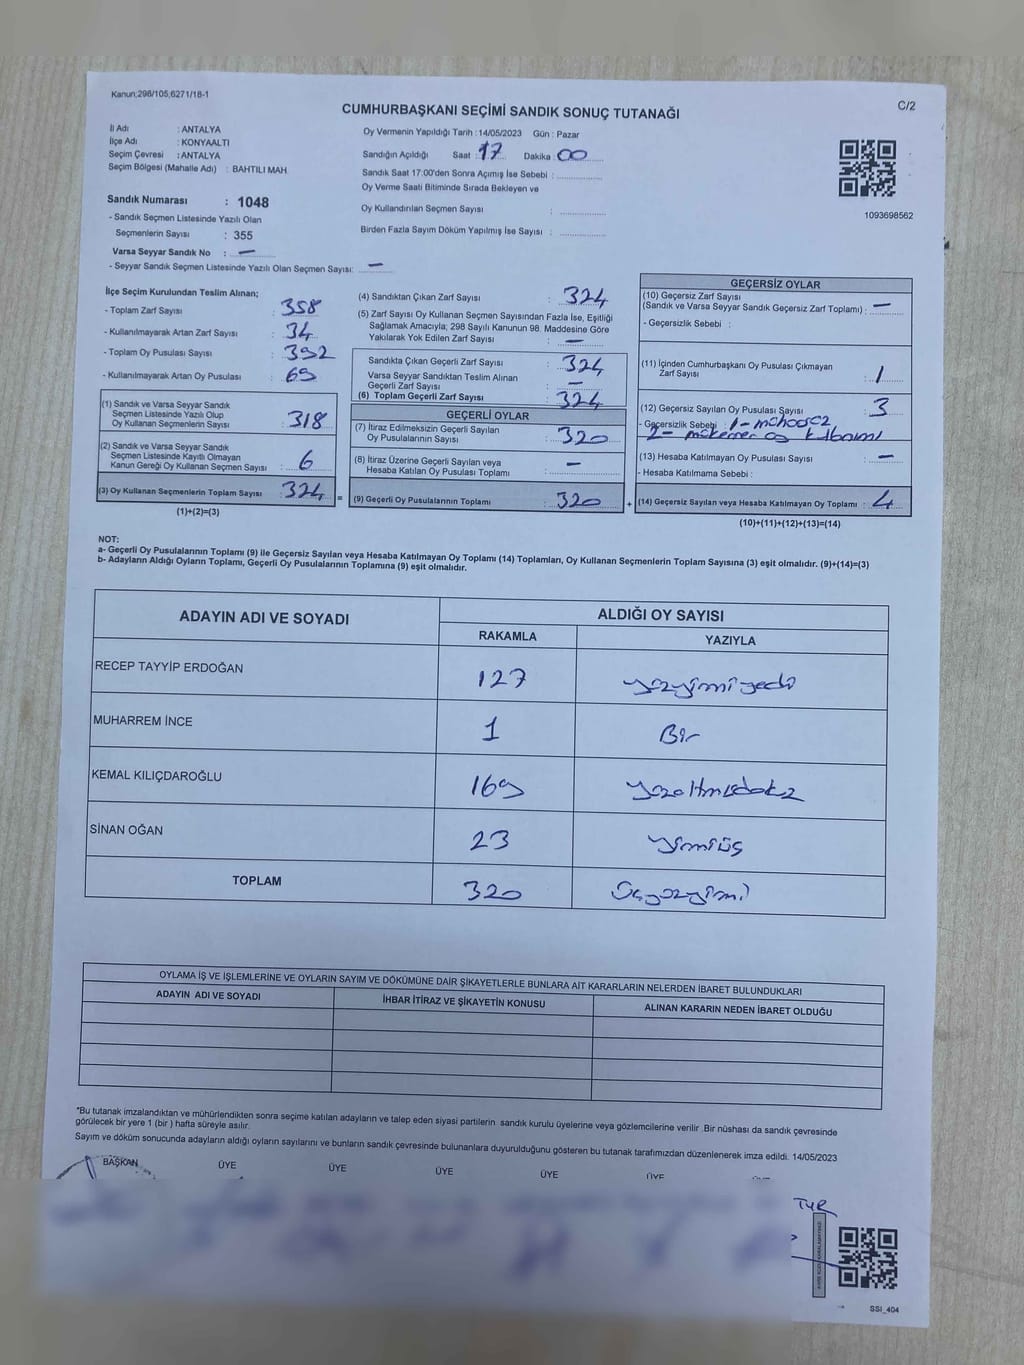 Kanun;298/105;6271/18-1
C/2
CUMHURBAŞKANI SEÇİMİ SANDIK SONUÇ TUTANAĞI
İl Adı : ANTALYA
İlçe Adı : KONYAALTI
Seçim Çevresi : ANTALYA
Seçim Bölgesi (Mahalle Adı) : BAHTILI MAH
Sandık Numarası : 1048
- Sandık Seçmen Listesinde Yazılı Olan
Seçmenlerin Sayısı : 355
Varsa Seyyar Sandık No : —
- Seyyar Sandık Seçmen Listesinde Yazılı Olan Seçmen Sayısı: —
Oy Vermenin Yapıldığı Tarih : 14/05/2023 Gün : Pazar
Sandığın Açıldığı Saat : 17 Dakika : 00
Sandık Saat 17:00'den Sonra Açılmış İse Sebebi :
Oy Verme Saati Bitiminde Sırada Bekleyen ve
Oy Kullandırılan Seçmen Sayısı :
Birden Fazla Sayım Döküm Yapılmış İse Sayısı :
1093698562
İlçe Seçim Kurulundan Teslim Alınan;
- Toplam Zarf Sayısı : 358
- Kullanılmayarak Artan Zarf Sayısı : 34
- Toplam Oy Pusulası Sayısı : 392
- Kullanılmayarak Artan Oy Pusulası : 69
(1) Sandık ve Varsa Seyyar Sandık
Seçmen Listesinde Yazılı Olup
Oy Kullanan Seçmenlerin Sayısı : 318
(2) Sandık ve Varsa Seyyar Sandık
Seçmen Listesinde Kayıtlı Olmayan
Kanun Gereği Oy Kullanan Seçmen Sayısı : 6
(3) Oy Kullanan Seçmenlerin Toplam Sayısı : 324
(1)+(2)=(3)
(4) Sandıktan Çıkan Zarf Sayısı : 324
(5) Zarf Sayısı Oy Kullanan Seçmen Sayısından Fazla İse, Eşitliği
Sağlamak Amacıyla; 298 Sayılı Kanunun 98. Maddesine Göre
Yakılarak Yok Edilen Zarf Sayısı : —
Sandıkta Çıkan Geçerli Zarf Sayısı : 324
Varsa Seyyar Sandıktan Teslim Alınan
Geçerli Zarf Sayısı : —
(6) Toplam Geçerli Zarf Sayısı : 324
GEÇERLİ OYLAR
(7) İtiraz Edilmeksizin Geçerli Sayılan
Oy Pusulalarının Sayısı : 320
(8) İtiraz Üzerine Geçerli Sayılan veya
Hesaba Katılan Oy Pusulası Toplamı : —
= (9) Geçerli Oy Pusulalarının Toplamı : 320 +
GEÇERSİZ OYLAR
(10) Geçersiz Zarf Sayısı
(Sandık ve Varsa Seyyar Sandık Geçersiz Zarf Toplamı) : —
- Geçersizlik Sebebi :
(11) İçinden Cumhurbaşkanı Oy Pusulası Çıkmayan
Zarf Sayısı : 1
(12) Geçersiz Sayılan Oy Pusulası Sayısı : 3
- Geçersizlik Sebebi : 1-
2- mükerrer oy
(13) Hesaba Katılmayan Oy Pusulası Sayısı : —
- Hesaba Katılmama Sebebi :
(14) Geçersiz Sayılan veya Hesaba Katılmayan Oy Toplamı : 4
(10)+(11)+(12)+(13)=(14)
NOT:
a- Geçerli Oy Pusulalarının Toplamı (9) ile Geçersiz Sayılan veya Hesaba Katılmayan Oy Toplamı (14) Toplamları, Oy Kullanan Seçmenlerin Toplam Sayısına (3) eşit olmalıdır. (9)+(14)=(3)
b- Adayların Aldığı Oyların Toplamı, Geçerli Oy Pusulalarının Toplamına (9) eşit olmalıdır.
ADAYIN ADI VE SOYADI
ALDIĞI OY SAYISI
RAKAMLA YAZIYLA
RECEP TAYYİP ERDOĞAN 127 yüzyirmiyedi
MUHARREM İNCE 1 Bir
KEMAL KILIÇDAROĞLU 169 yüzaltmışdokuz
SİNAN OĞAN 23 yirmiüç
TOPLAM 320 Üçyüzyirmi
OYLAMA İŞ VE İŞLEMLERİNE VE OYLARIN SAYIM VE DÖKÜMÜNE DAİR ŞİKAYETLERLE BUNLARA AİT KARARLARIN NELERDEN İBARET BULUNDUKLARI
ADAYIN ADI VE SOYADI İHBAR İTİRAZ VE ŞİKAYETİN KONUSU ALINAN KARARIN NEDEN İBARET OLDUĞU
*Bu tutanak imzalandıktan ve mühürlendikten sonra seçime katılan adayların ve talep eden siyasi partilerin sandık kurulu üyelerine veya gözlemcilerine verilir .Bir nüshası da sandık çevresinde
görülecek bir yere 1 (bir ) hafta süreyle asılır.
Sayım ve döküm sonucunda adayların aldığı oyların sayılarını ve bunların sandık çevresinde bulunanlara duyurulduğunu gösteren bu tutanak tarafımızdan düzenlenerek imza edildi. 14/05/2023
BAŞKAN ÜYE ÜYE ÜYE ÜYE ÜYE
SSI_404